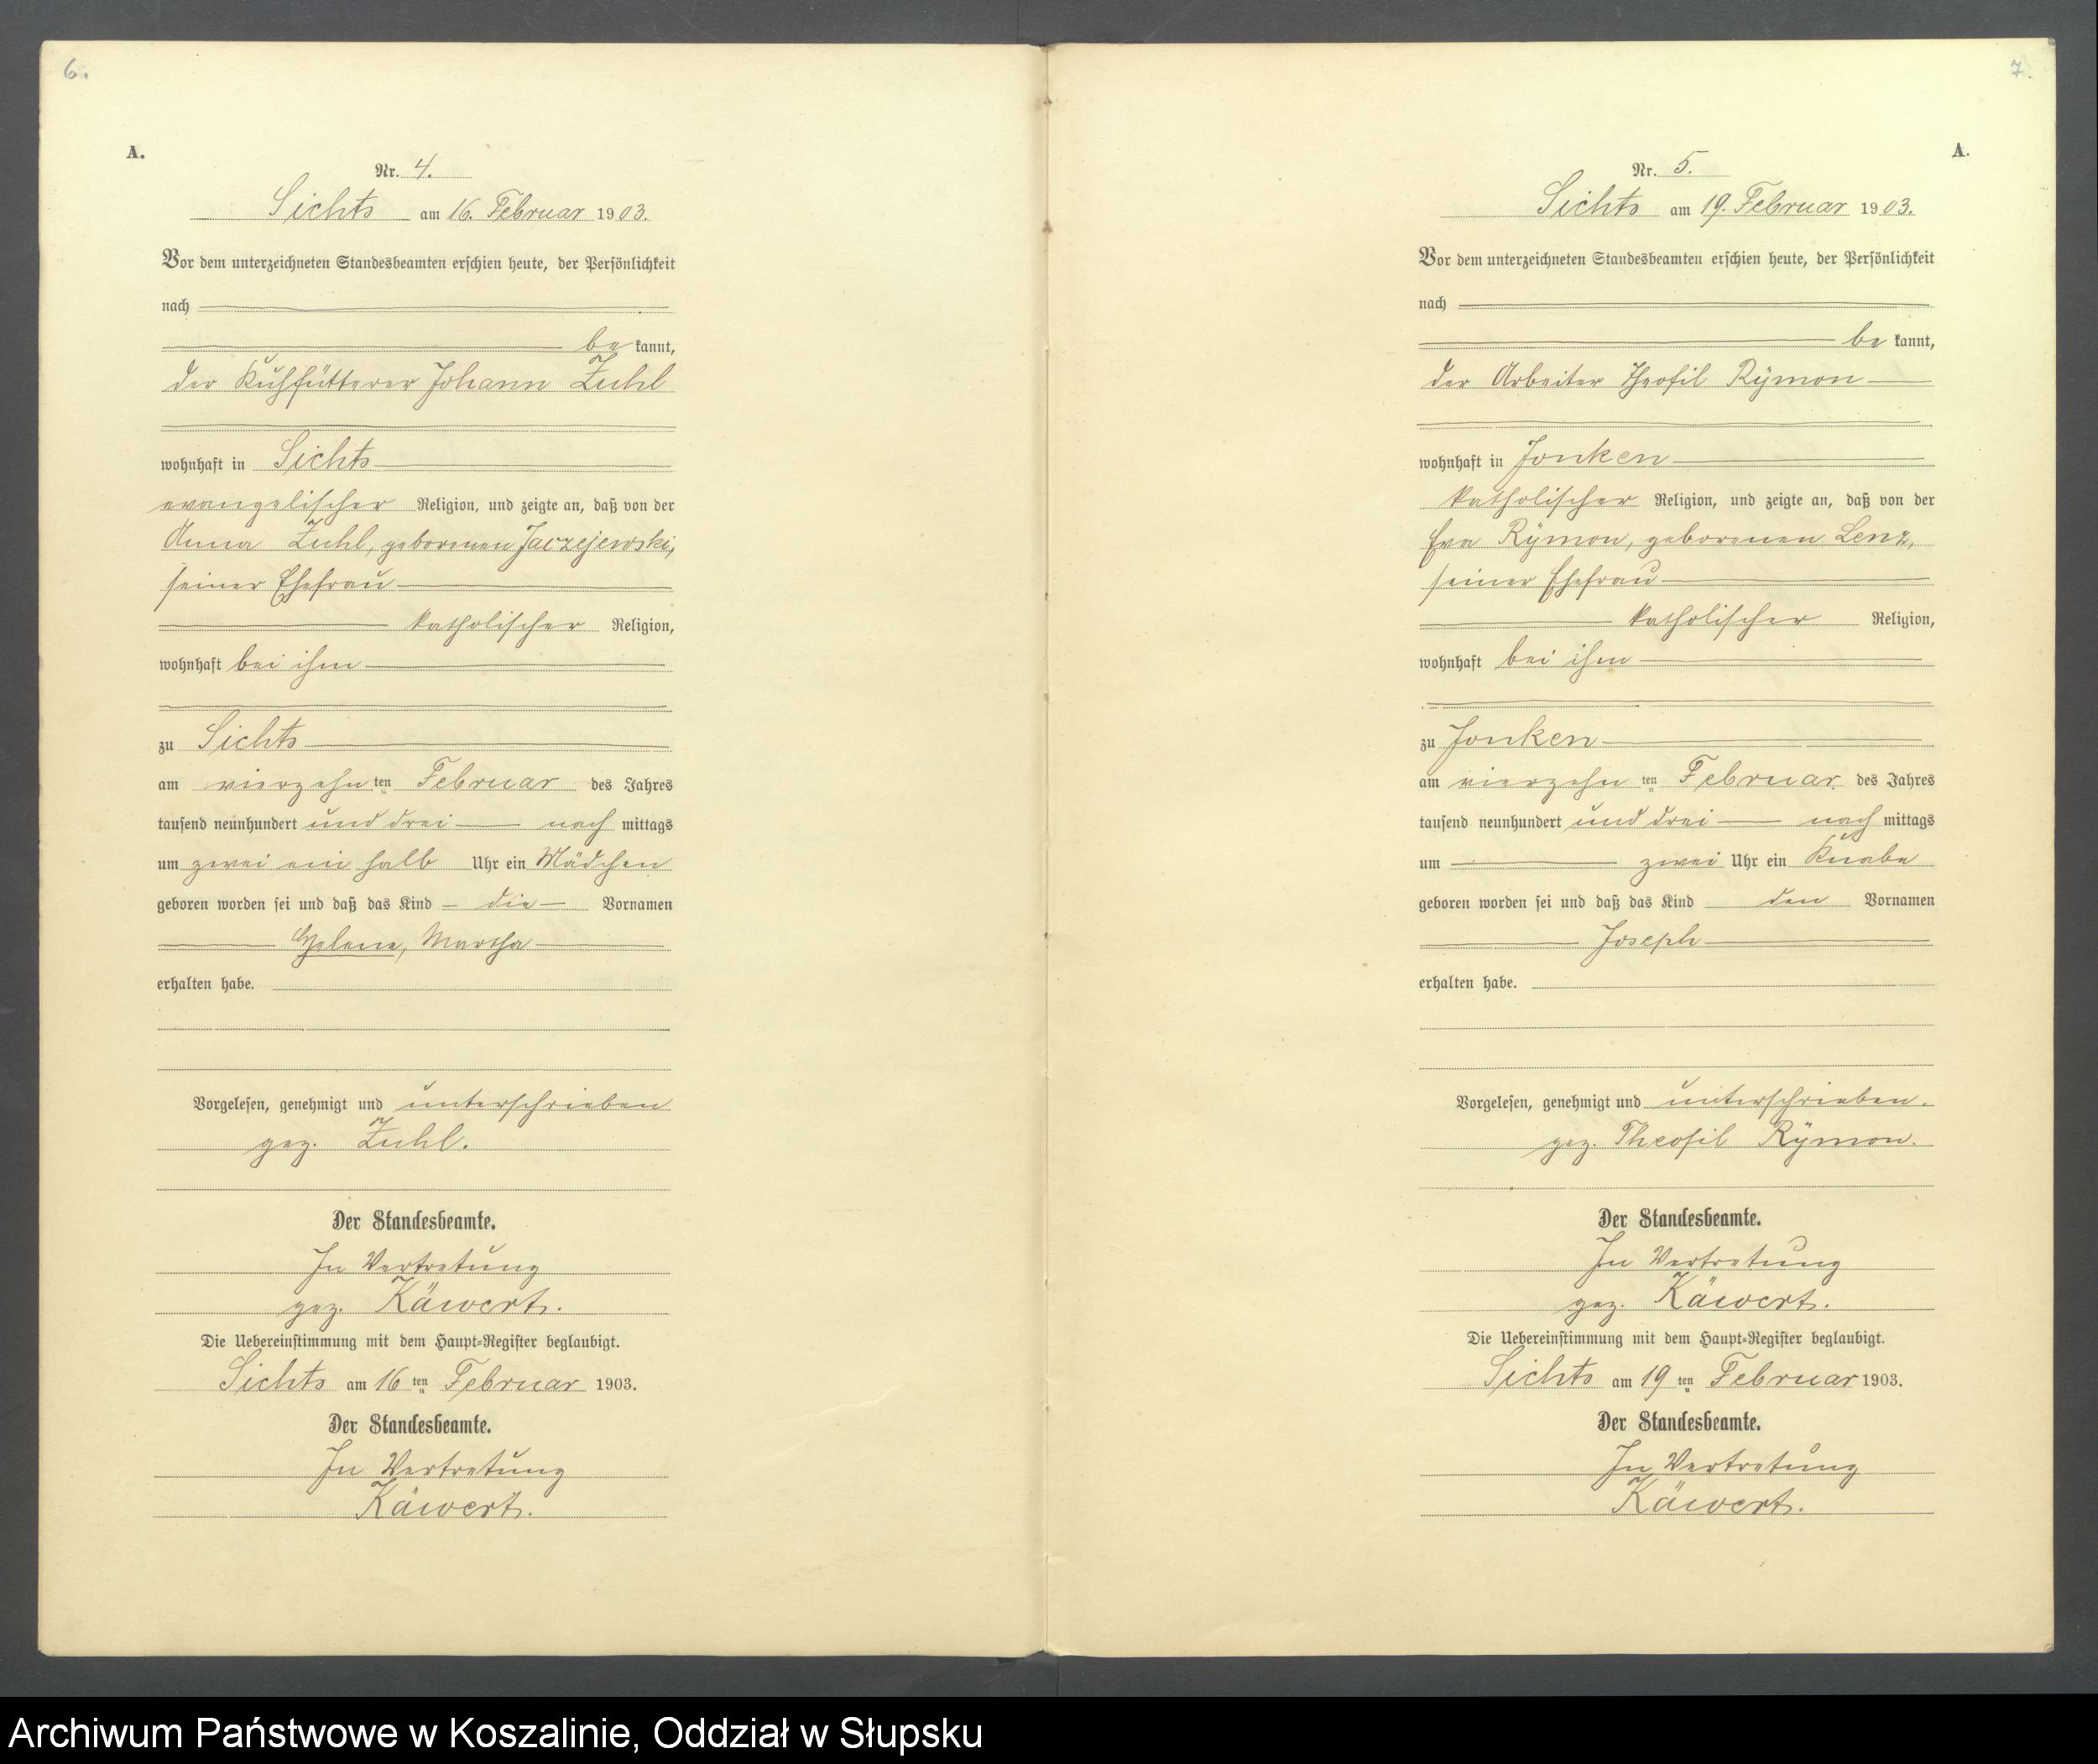 6.
A.
Nr. 4.
Sichts am 16. Februar 1903.
Vor dem unterzeichneten Standesbeamten erschien heute, der Persönlichkeit
nach
be kannt,
der Kuhfütterer Johann Zuhl
wohnhaft in Sichts
evangelischer Religion, und zeigte an, daß von der
Anna Zuhl, geborenen Jaczejewski,
seiner Ehefrau
katholischer Religion,
wohnhaft bei ihm
zu Sichts
am vierzehn ten Februar des Jahres
tausend neunhundert und drei nach mittags
um zwei ein halb Uhr ein Mädchen
geboren worden sei und daß das Kind die Vornamen
Helene, Martha
erhalten habe.
Vorgelesen, genehmigt und unterschrieben
gez. Zuhl.
Der Standesbeamte.
In Vertretung
gez. Käwert.
Die Uebereinstimmung mit dem Haupt-Register beglaubigt.
Sichts am 16 ten Februar 1903.
Der Standesbeamte.
In Vertretung
Käwert.
7.
A.
Nr. 5.
Sichts am 19. Februar 1903.
Vor dem unterzeichneten Standesbeamten erschien heute, der Persönlichkeit
nach
be kannt,
der Arbeiter Theofil Rÿmon
wohnhaft in Jonken
katholischer Religion, und zeigte an, daß von der
Eva Rÿmon, geborenen Lenz,
seiner Ehefrau
katholischer Religion,
wohnhaft bei ihm
zu Jonken
am vierzehn ten Februar des Jahres
tausend neunhundert und drei nach mittags
um zwei Uhr ein Knabe
geboren worden sei und daß das Kind den Vornamen
Joseph
erhalten habe.
Vorgelesen, genehmigt und unterschrieben.
gez. Theofil Rÿmon.
Der Standesbeamte.
In Vertretung
gez. Käwert.
Die Uebereinstimmung mit dem Haupt-Register beglaubigt.
Sichts am 19 ten Februar 1903.
Der Standesbeamte.
In Vertretung
Käwert.
Archiwum Państwowe w Koszalinie, Oddział w Słupsku